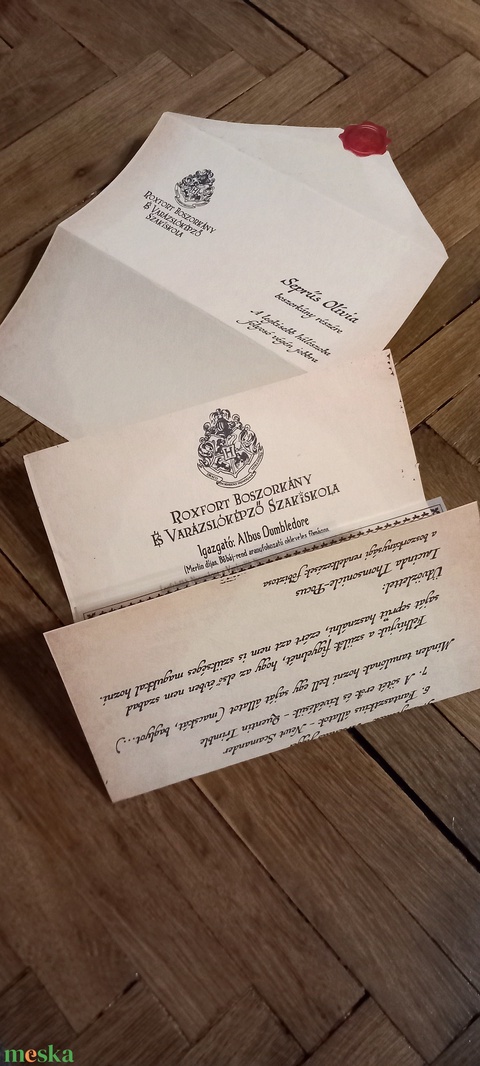 Roxfort Boszorkány
és Varázslóképző
Szakiskola
Seprűs Olívia
boszorkány részére
A legkisebb hálószoba
folyosó végén jobbra
Roxfort Boszorkány
és Varázslóképző Szakiskola
Igazgató: Albus Dumbledore
(Merlin díjas, Bűbáj-rend aranyfokozató okleveles főmágus
6. Fantasztikus állatok - Newt Scamander
7. A sötét erők és kivédésük - Quentin Trimble
Minden tanulónak hozni kell egy saját állatot (macskát, baglyot...)
Felhívjuk a szülők figyelmét, hogy az első évben nem szabad
saját seprűt használni, ezért azt nem is szükséges magukkal hozni.
Üdvözlettel:
Lucinda Thomsonicle-Pocus
a boszorkányügyi rendelkezések főbiztosa
meska